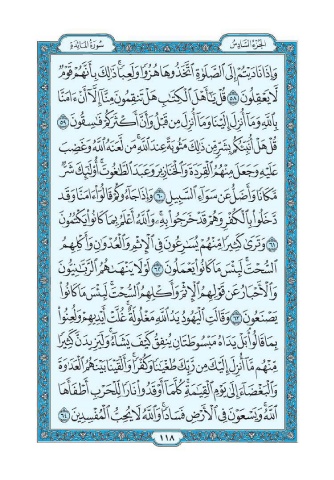 الجزء السادس
سورة المائدة
وَإِذَا نَادَيْتُمْ إِلَى الصَّلَوٰةِ اتَّخَذُوهَا هُزُوًا وَلَعِبًا ذَٰلِكَ بِأَنَّهُمْ قَوْمٌ
لَا يَعْقِلُونَ ٥٨ قُلْ يَٰٓأَهْلَ الْكِتَٰبِ هَلْ تَنقِمُونَ مِنَّا إِلَّا أَنْ ءَامَنَّا
بِاللَّهِ وَمَا أُنزِلَ إِلَيْنَا وَمَا أُنزِلَ مِن قَبْلُ وَأَنَّ أَكْثَرَكُمْ فَٰسِقُونَ ٥٩
قُلْ هَلْ أُنَبِّئُكُم بِشَرٍّ مِّن ذَٰلِكَ مَثُوبَةً عِندَ اللَّهِ مَن لَّعَنَهُ اللَّهُ وَغَضِبَ
عَلَيْهِ وَجَعَلَ مِنْهُمُ الْقِرَدَةَ وَالْخَنَازِيرَ وَعَبَدَ الطَّٰغُوتَ أُولَٰٓئِكَ شَرٌّ
مَّكَانًا وَأَضَلُّ عَن سَوَاءِ السَّبِيلِ ٦٠ وَإِذَا جَاءُوكُمْ قَالُوا ءَامَنَّا وَقَد
دَّخَلُوا بِالْكُفْرِ وَهُمْ قَدْ خَرَجُوا بِهِ وَاللَّهُ أَعْلَمُ بِمَا كَانُوا يَكْتُمُونَ
٦١ وَتَرَىٰ كَثِيرًا مِّنْهُمْ يُسَٰرِعُونَ فِي الْإِثْمِ وَالْعُدْوَٰنِ وَأَكْلِهِمُ
السُّحْتَ لَبِئْسَ مَا كَانُوا يَعْمَلُونَ ٦٢ لَوْلَا يَنْهَىٰهُمُ الرَّبَّٰنِيُّونَ
وَالْأَحْبَارُ عَن قَوْلِهِمُ الْإِثْمَ وَأَكْلِهِمُ السُّحْتَ لَبِئْسَ مَا كَانُوا
يَصْنَعُونَ ٦٣ وَقَالَتِ الْيَهُودُ يَدُ اللَّهِ مَغْلُولَةٌ غُلَّتْ أَيْدِيهِمْ وَلُعِنُوا
بِمَا قَالُوا بَلْ يَدَاهُ مَبْسُوطَتَانِ يُنفِقُ كَيْفَ يَشَاءُ وَلَيَزِيدَنَّ كَثِيرًا
مِّنْهُم مَّا أُنزِلَ إِلَيْكَ مِن رَّبِّكَ طُغْيَٰنًا وَكُفْرًا وَأَلْقَيْنَا بَيْنَهُمُ الْعَدَٰوَةَ
وَالْبَغْضَاءَ إِلَىٰ يَوْمِ الْقِيَٰمَةِ كُلَّمَا أَوْقَدُوا نَارًا لِّلْحَرْبِ أَطْفَأَهَا
اللَّهُ وَيَسْعَوْنَ فِي الْأَرْضِ فَسَادًا وَاللَّهُ لَا يُحِبُّ الْمُفْسِدِينَ ٦٤
١١٨